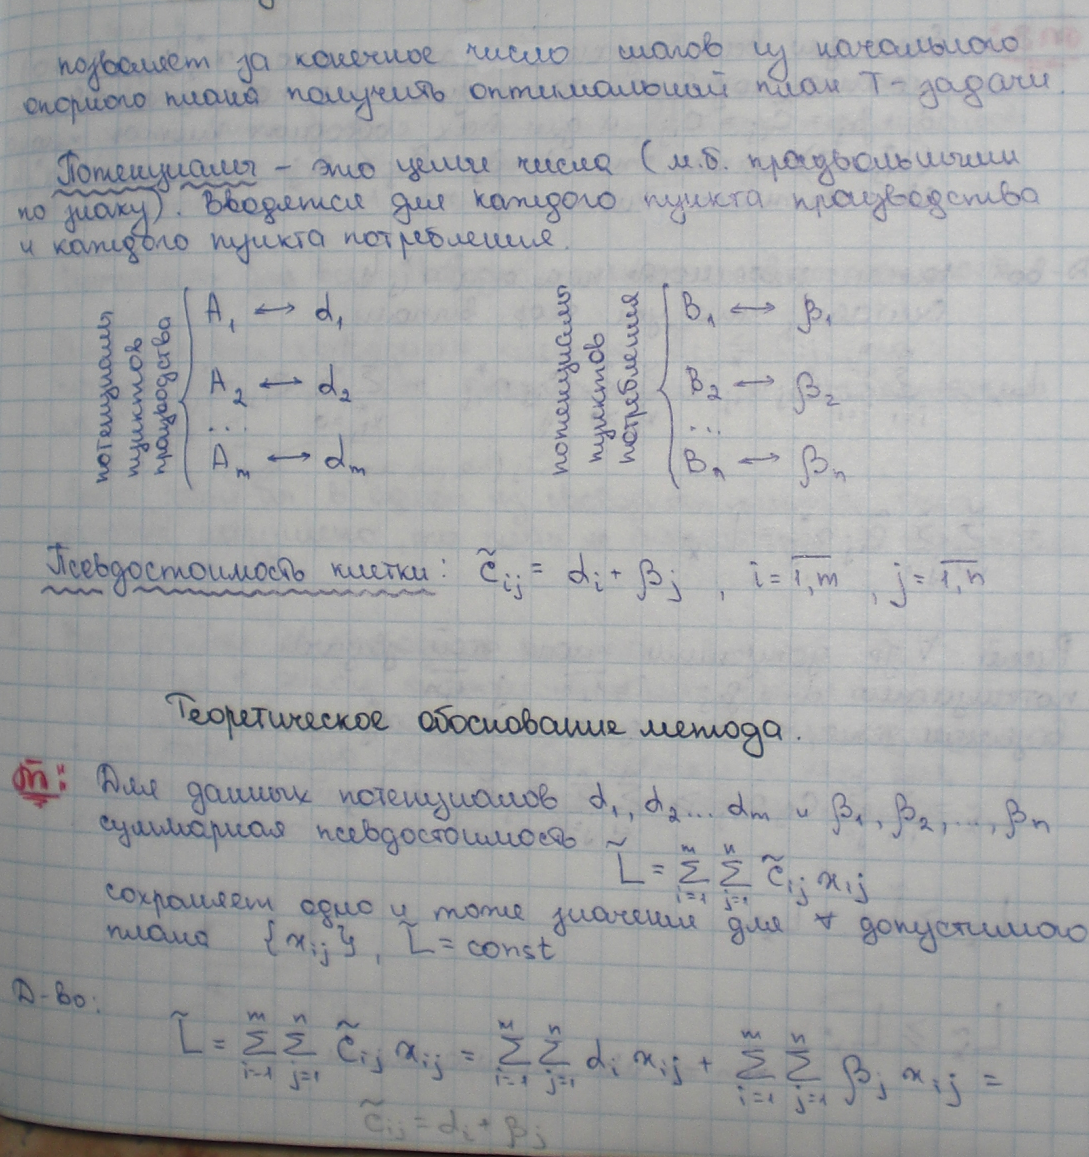 позволяет за конечное число шагов из начального
опорного плана получить оптимальный план Т-задачи.
Потенциалы – это целые числа (м.б. произвольными
по знаку). Вводятся для каждого пункта производства
и каждого пункта потребления.
потенциалы
пунктов
производства
A₁ ↔ α₁
A₂ ↔ α₂
...
Aₘ ↔ αₘ
потенциалы
пунктов
потребления
B₁ ↔ β₁
B₂ ↔ β₂
...
Bₙ ↔ βₙ
Псевдостоимость клетки: c̃ᵢⱼ = αᵢ + βⱼ , i = 1,m , j = 1,n
Теоретическое обоснование метода.
Т: Для данных потенциалов α₁, α₂... αₘ и β₁, β₂, ..., βₙ
суммарная псевдостоимость
L̃ = ∑ᵢ₌₁ᵐ ∑ⱼ₌₁ⁿ c̃ᵢⱼ xᵢⱼ
сохраняет одно и тоже значение для ∀ допустимого
плана {xᵢⱼ}, L̃ = const
Д-во:
L̃ = ∑ᵢ₌₁ᵐ ∑ⱼ₌₁ⁿ c̃ᵢⱼ xᵢⱼ = ∑ᵢ₌₁ᵐ ∑ⱼ₌₁ⁿ αᵢ xᵢⱼ + ∑ᵢ₌₁ᵐ ∑ⱼ₌₁ⁿ βⱼ xᵢⱼ =
c̃ᵢⱼ = αᵢ + βⱼ